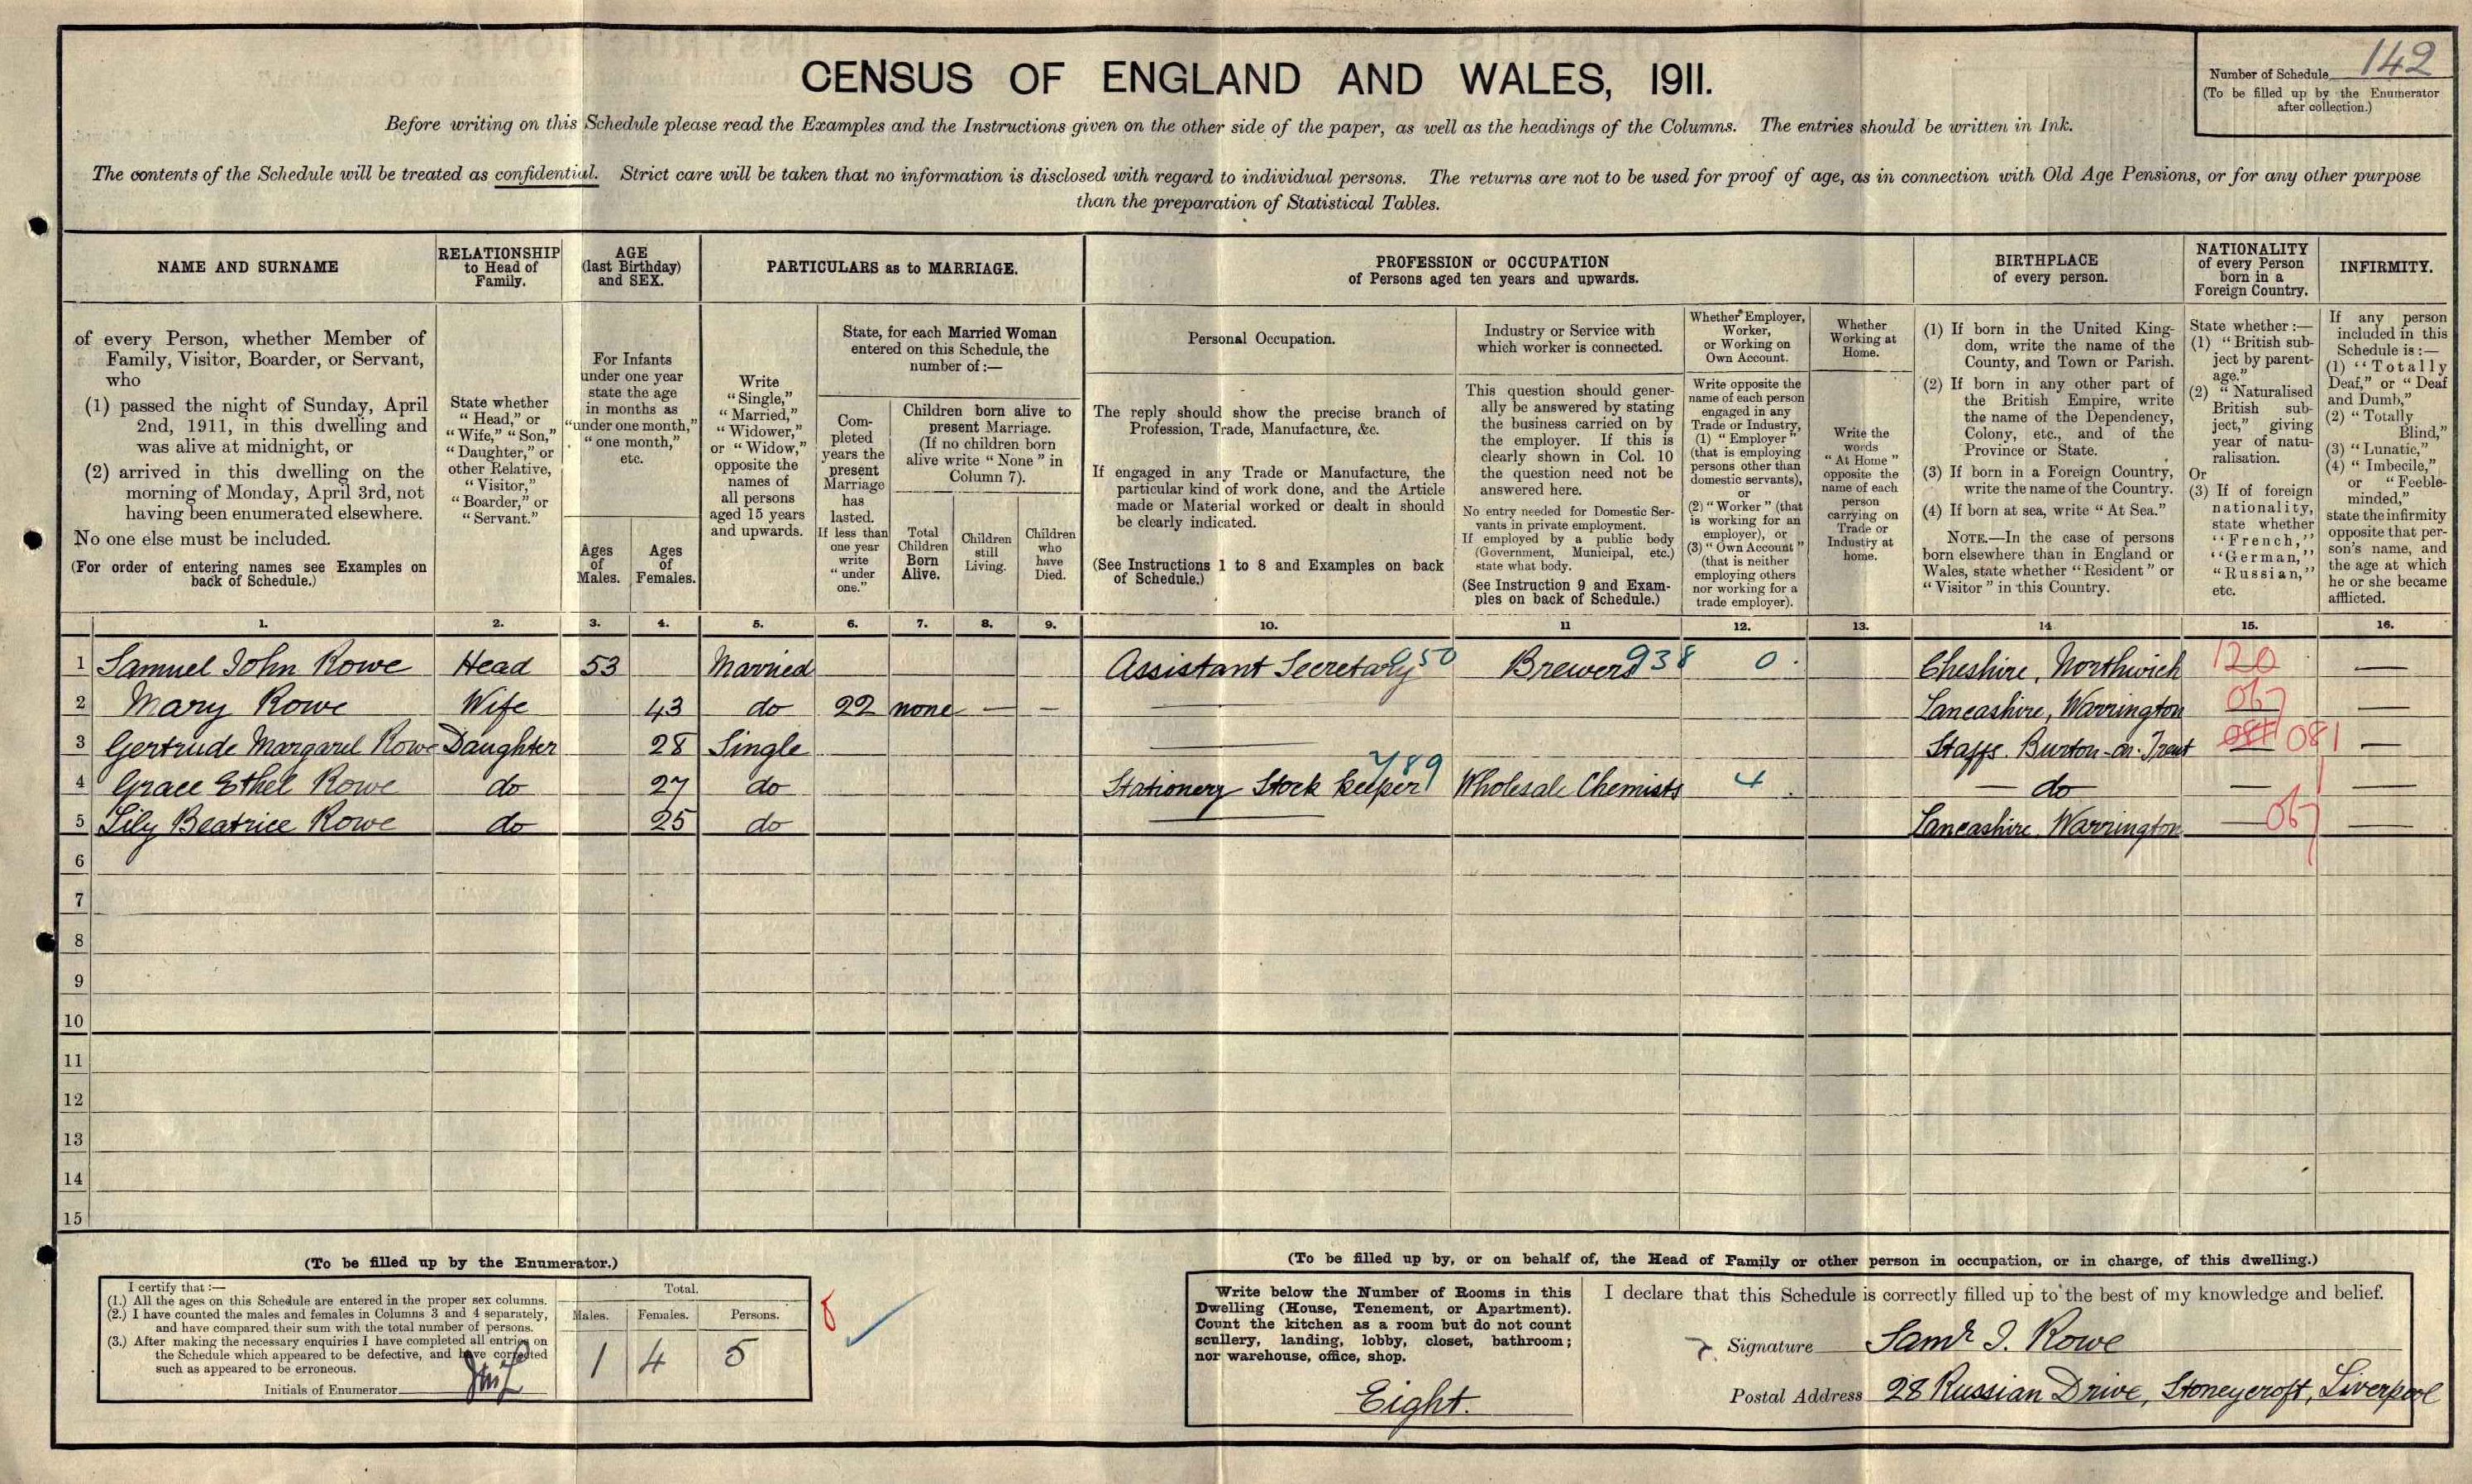 CENSUS OF ENGLAND AND WALES, 1911.
Number of Schedule 142
(To be filled up by the Enumerator
after collection.)
Before writing on this Schedule please read the Examples and the Instructions given on the other side of the paper, as well as the headings of the Columns. The entries should be written in Ink.
The contents of the Schedule will be treated as confidential. Strict care will be taken that no information is disclosed with regard to individual persons. The returns are not to be used for proof of age, as in connection with Old Age Pensions, or for any other purpose
than the preparation of Statistical Tables.
NAME AND SURNAME
of every Person, whether Member of
Family, Visitor, Boarder, or Servant,
who
(1) passed the night of Sunday, April
2nd, 1911, in this dwelling and
was alive at midnight, or
(2) arrived in this dwelling on the
morning of Monday, April 3rd, not
having been enumerated elsewhere.
No one else must be included.
(For order of entering names see Examples on
back of Schedule.)
RELATIONSHIP
to Head of
Family.
State whether
“Head,” or
“Wife,” “Son,”
“Daughter,” or
other Relative,
“Visitor,”
“Boarder,” or
“Servant.”
AGE
(last Birthday)
and SEX.
For Infants
under one year
state the age
in months as
“under one month,”
“one month,”
etc.
Ages
of
Males.
Ages
of
Females.
PARTICULARS as to MARRIAGE.
Write
“Single,”
“Married,”
“Widower,”
or “Widow,”
opposite the
names of
all persons
aged 15 years
and upwards.
State, for each Married Woman
entered on this Schedule, the
number of :—
Com-
pleted
years the
present
Marriage
has
lasted.
If less than
one year
write
“under
one.”
Children born alive to
present Marriage.
(If no children born
alive write “None” in
Column 7).
Total
Children
Born
Alive.
Children
still
Living.
Children
who
have
Died.
PROFESSION or OCCUPATION
of Persons aged ten years and upwards.
Personal Occupation.
The reply should show the precise branch of
Profession, Trade, Manufacture, &c.
If engaged in any Trade or Manufacture, the
particular kind of work done, and the Article
made or Material worked or dealt in should
be clearly indicated.
(See Instructions 1 to 8 and Examples on back
of Schedule.)
Industry or Service with
which worker is connected.
This question should gener-
ally be answered by stating
the business carried on by
the employer. If this is
clearly shown in Col. 10
the question need not be
answered here.
No entry needed for Domestic Ser-
vants in private employment.
If employed by a public body
(Government, Municipal, etc.)
state what body.
(See Instruction 9 and Exam-
ples on back of Schedule.)
Whether Employer,
Worker,
or Working on
Own Account.
Write opposite the
name of each person
engaged in any
Trade or Industry,
(1) “Employer”
(that is employing
persons other than
domestic servants),
or
(2) “Worker” (that
is working for an
employer), or
(3) “Own Account”
(that is neither
employing others
nor working for a
trade employer).
Whether
Working at
Home.
Write the
words
“At Home”
opposite the
name of each
person
carrying on
Trade or
Industry at
home.
BIRTHPLACE
of every person.
(1) If born in the United King-
dom, write the name of the
County, and Town or Parish.
(2) If born in any other part of
the British Empire, write
the name of the Dependency,
Colony, etc., and of the
Province or State.
(3) If born in a Foreign Country,
write the name of the Country.
(4) If born at sea, write “At Sea.”
NOTE.—In the case of persons
born elsewhere than in England or
Wales, state whether “Resident” or
“Visitor” in this Country.
NATIONALITY
of every Person
born in a
Foreign Country.
State whether :—
(1) “British sub-
ject by parent-
age.”
(2) “Naturalised
British sub-
ject,” giving
year of natu-
ralisation.
Or
(3) If of foreign
nationality,
state whether
“French,”
“German,”
“Russian,”
etc.
INFIRMITY.
If any person
included in this
Schedule is :—
(1) “Totally
Deaf,” or “Deaf
and Dumb,”
(2) “Totally
Blind,”
(3) “Lunatic,”
(4) “Imbecile,”
or “Feeble-
minded,”
state the infirmity
opposite that per-
son's name, and
the age at which
he or she became
afflicted.
1. 2. 3. 4. 5. 6. 7. 8. 9. 10. 11 12. 13. 14 15. 16.
1 Samuel John Rowe Head 53 Married Assistant Secretary 950 Brewers 938 0 Cheshire, Northwich 120 —
2 Mary Rowe Wife 43 do 22 none — — — Lancashire, Warrington 067 —
3 Gertrude Margaret Rowe Daughter 28 Single — Staffs. Burton-on-Trent 081 —
4 Grace Ethel Rowe do 27 do Stationery Stock keeper 789 Wholesale Chemists 4 — do — —
5 Lily Beatrice Rowe do 25 do — Lancashire, Warrington — 067 —
6
7
8
9
10
11
12
13
14
15
(To be filled up by the Enumerator.)
I certify that :—
(1.) All the ages on this Schedule are entered in the proper sex columns.
(2.) I have counted the males and females in Columns 3 and 4 separately,
and have compared their sum with the total number of persons.
(3.) After making the necessary enquiries I have completed all entries on
the Schedule which appeared to be defective, and have corrected
such as appeared to be erroneous.
Initials of Enumerator
Total.
Males. Females. Persons.
1 4 5
8
(To be filled up by, or on behalf of, the Head of Family or other person in occupation, or in charge, of this dwelling.)
Write below the Number of Rooms in this
Dwelling (House, Tenement, or Apartment).
Count the kitchen as a room but do not count
scullery, landing, lobby, closet, bathroom;
nor warehouse, office, shop.
Eight.
I declare that this Schedule is correctly filled up to the best of my knowledge and belief.
Signature Saml J. Rowe
Postal Address 28 Russian Drive, Stoneycroft, Liverpool